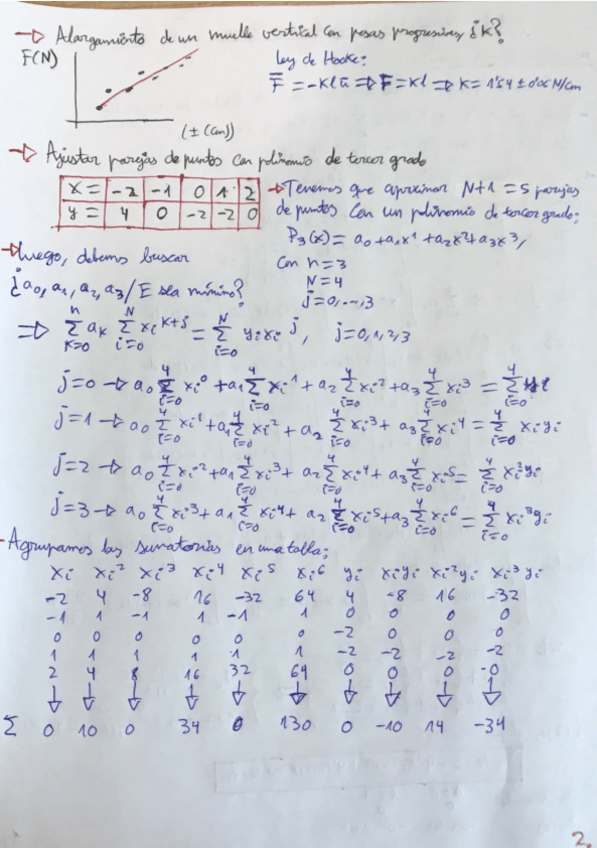 → Alargamiento de un muelle vertical con pesas progresivas, ¿k?
F(N)
(± (cm))
Ley de Hooke:
F̅ = -Klū ⇒ F = Kl ⇒ K = 1'54 ± 0'06 N/cm
→ Ajustar parejas de puntos con polinomio de tercer grado
x = -2 -1 0 1 2
y = 4 0 -2 -2 0
→ Tenemos que aproximar N+1 = 5 parejas
de puntos con un polinomio de tercer grado:
P₃(x) = a₀ + a₁x¹ + a₂x² + a₃x³,
con n = 3
N = 4
j = 0, ..., 3
→ Luego, debemos buscar
¿a₀, a₁, a₂, a₃ / E sea mínimo?
⇒ ∑ₖ₌₀ⁿ aₖ ∑ᵢ₌₀ᴺ xᵢᵏ⁺ʲ = ∑ᵢ₌₀ᴺ yᵢxᵢʲ, j = 0, 1, 2, 3
j=0 → a₀ ∑ᵢ₌₀⁴ xᵢ⁰ + a₁ ∑ᵢ₌₀⁴ xᵢ¹ + a₂ ∑ᵢ₌₀⁴ xᵢ² + a₃ ∑ᵢ₌₀⁴ xᵢ³ = ∑ᵢ₌₀⁴ yᵢ
j=1 → a₀ ∑ᵢ₌₀⁴ xᵢ¹ + a₁ ∑ᵢ₌₀⁴ xᵢ² + a₂ ∑ᵢ₌₀⁴ xᵢ³ + a₃ ∑ᵢ₌₀⁴ xᵢ⁴ = ∑ᵢ₌₀⁴ xᵢyᵢ
j=2 → a₀ ∑ᵢ₌₀⁴ xᵢ² + a₁ ∑ᵢ₌₀⁴ xᵢ³ + a₂ ∑ᵢ₌₀⁴ xᵢ⁴ + a₃ ∑ᵢ₌₀⁴ xᵢ⁵ = ∑ᵢ₌₀⁴ xᵢ²yᵢ
j=3 → a₀ ∑ᵢ₌₀⁴ xᵢ³ + a₁ ∑ᵢ₌₀⁴ xᵢ⁴ + a₂ ∑ᵢ₌₀⁴ xᵢ⁵ + a₃ ∑ᵢ₌₀⁴ xᵢ⁶ = ∑ᵢ₌₀⁴ xᵢ³yᵢ
- Agrupamos las sumatorias en una tabla:
xᵢ xᵢ² xᵢ³ xᵢ⁴ xᵢ⁵ xᵢ⁶ yᵢ xᵢyᵢ xᵢ²yᵢ xᵢ³yᵢ
-2 4 -8 16 -32 64 4 -8 16 -32
-1 1 -1 1 -1 1 0 0 0 0
0 0 0 0 0 0 -2 0 0 0
1 1 1 1 1 1 -2 -2 -2 -2
2 4 8 16 32 64 0 0 0 -0
∑ 0 10 0 34 0 130 0 -10 14 -34
2.